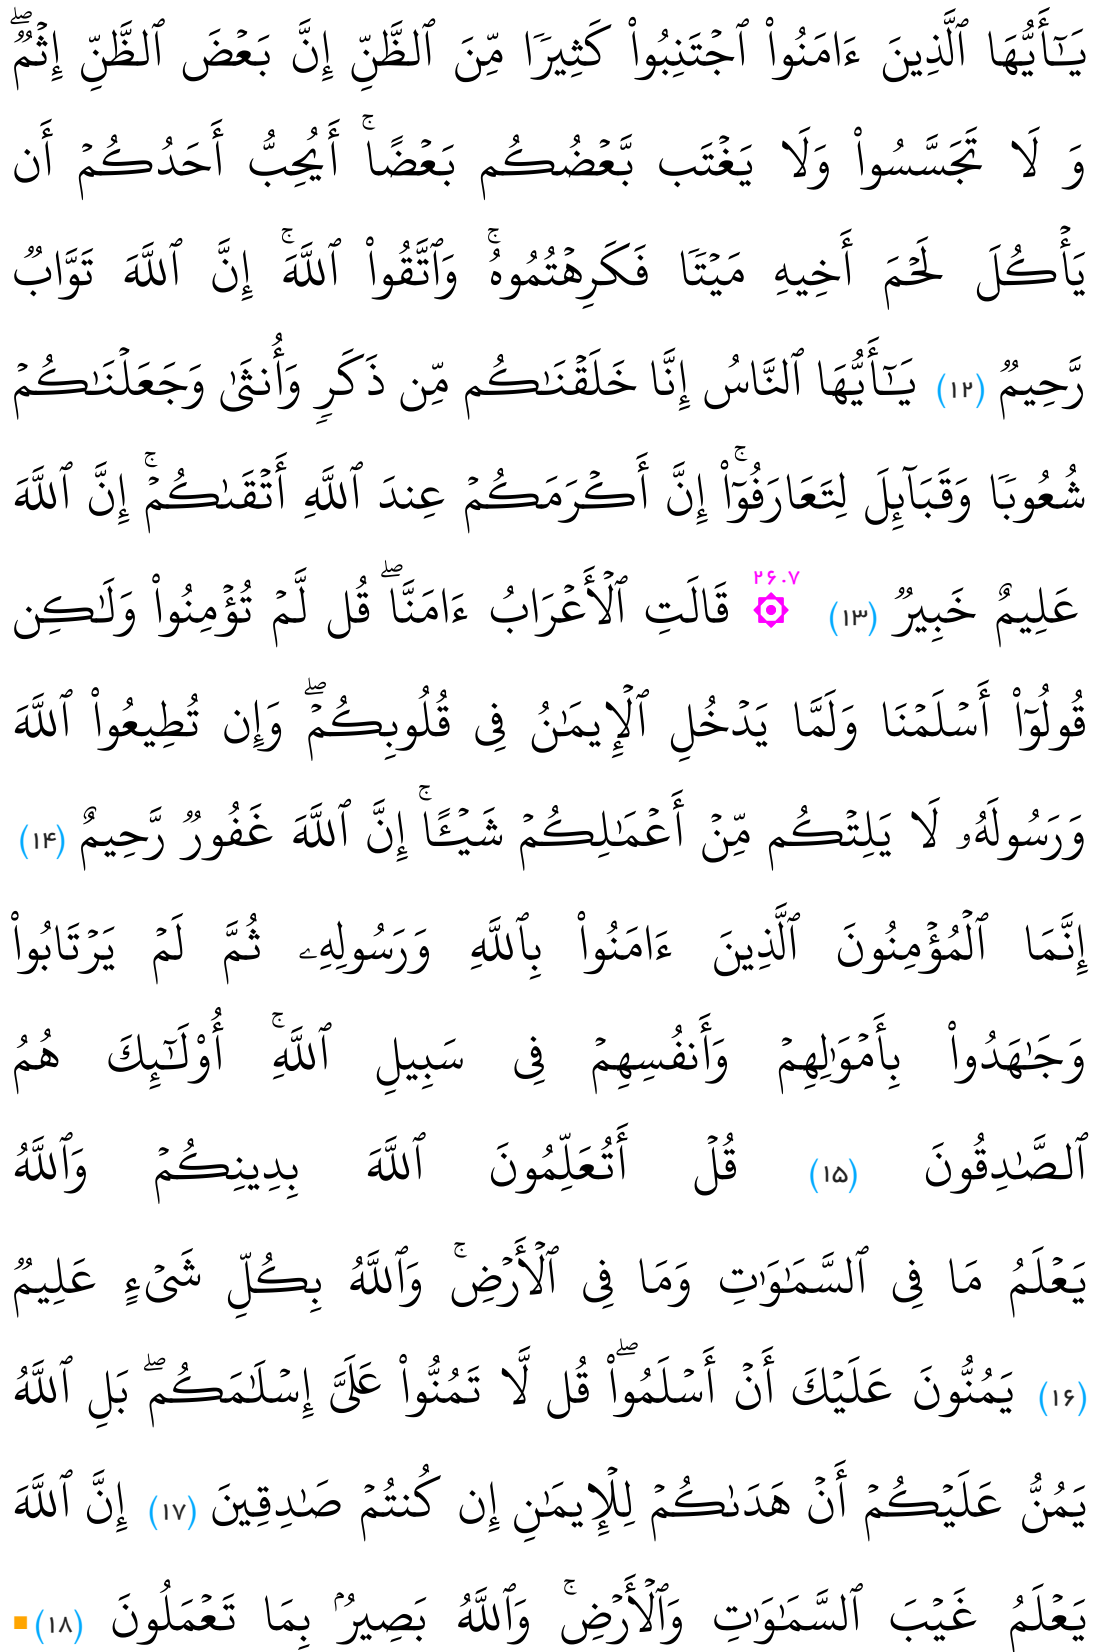 يَـٰٓأَيُّهَا ٱلَّذِينَ ءَامَنُوا۟ ٱجْتَنِبُوا۟ كَثِيرًۭا مِّنَ ٱلظَّنِّ إِنَّ بَعْضَ ٱلظَّنِّ إِثْمٌۭ ۖ
وَ لَا تَجَسَّسُوا۟ وَلَا يَغْتَب بَّعْضُكُم بَعْضًا ۚ أَيُحِبُّ أَحَدُكُمْ أَن
يَأْكُلَ لَحْمَ أَخِيهِ مَيْتًۭا فَكَرِهْتُمُوهُ ۚ وَٱتَّقُوا۟ ٱللَّهَ ۚ إِنَّ ٱللَّهَ تَوَّابٌۭ
رَّحِيمٌۭ (۱۲) يَـٰٓأَيُّهَا ٱلنَّاسُ إِنَّا خَلَقْنَـٰكُم مِّن ذَكَرٍۢ وَأُنثَىٰ وَجَعَلْنَـٰكُمْ
شُعُوبًۭا وَقَبَآئِلَ لِتَعَارَفُوٓا۟ ۚ إِنَّ أَكْرَمَكُمْ عِندَ ٱللَّهِ أَتْقَىٰكُمْ ۚ إِنَّ ٱللَّهَ
عَلِيمٌ خَبِيرٌۭ (۱۳) ۲۶۰۷ ۞ قَالَتِ ٱلْأَعْرَابُ ءَامَنَّا ۖ قُل لَّمْ تُؤْمِنُوا۟ وَلَـٰكِن
قُولُوٓا۟ أَسْلَمْنَا وَلَمَّا يَدْخُلِ ٱلْإِيمَـٰنُ فِى قُلُوبِكُمْ ۖ وَإِن تُطِيعُوا۟ ٱللَّهَ
وَرَسُولَهُۥ لَا يَلِتْكُم مِّنْ أَعْمَـٰلِكُمْ شَيْـًٔا ۚ إِنَّ ٱللَّهَ غَفُورٌۭ رَّحِيمٌ (۱۴)
إِنَّمَا ٱلْمُؤْمِنُونَ ٱلَّذِينَ ءَامَنُوا۟ بِٱللَّهِ وَرَسُولِهِۦ ثُمَّ لَمْ يَرْتَابُوا۟
وَجَـٰهَدُوا۟ بِأَمْوَٰلِهِمْ وَأَنفُسِهِمْ فِى سَبِيلِ ٱللَّهِ ۚ أُو۟لَـٰٓئِكَ هُمُ
ٱلصَّـٰدِقُونَ (۱۵) قُلْ أَتُعَلِّمُونَ ٱللَّهَ بِدِينِكُمْ وَٱللَّهُ
يَعْلَمُ مَا فِى ٱلسَّمَـٰوَٰتِ وَمَا فِى ٱلْأَرْضِ ۚ وَٱللَّهُ بِكُلِّ شَىْءٍ عَلِيمٌۭ
(۱۶) يَمُنُّونَ عَلَيْكَ أَنْ أَسْلَمُوا۟ ۖ قُل لَّا تَمُنُّوا۟ عَلَىَّ إِسْلَـٰمَكُم ۖ بَلِ ٱللَّهُ
يَمُنُّ عَلَيْكُمْ أَنْ هَدَىٰكُمْ لِلْإِيمَـٰنِ إِن كُنتُمْ صَـٰدِقِينَ (۱۷) إِنَّ ٱللَّهَ
يَعْلَمُ غَيْبَ ٱلسَّمَـٰوَٰتِ وَٱلْأَرْضِ ۚ وَٱللَّهُ بَصِيرٌۢ بِمَا تَعْمَلُونَ (۱۸)